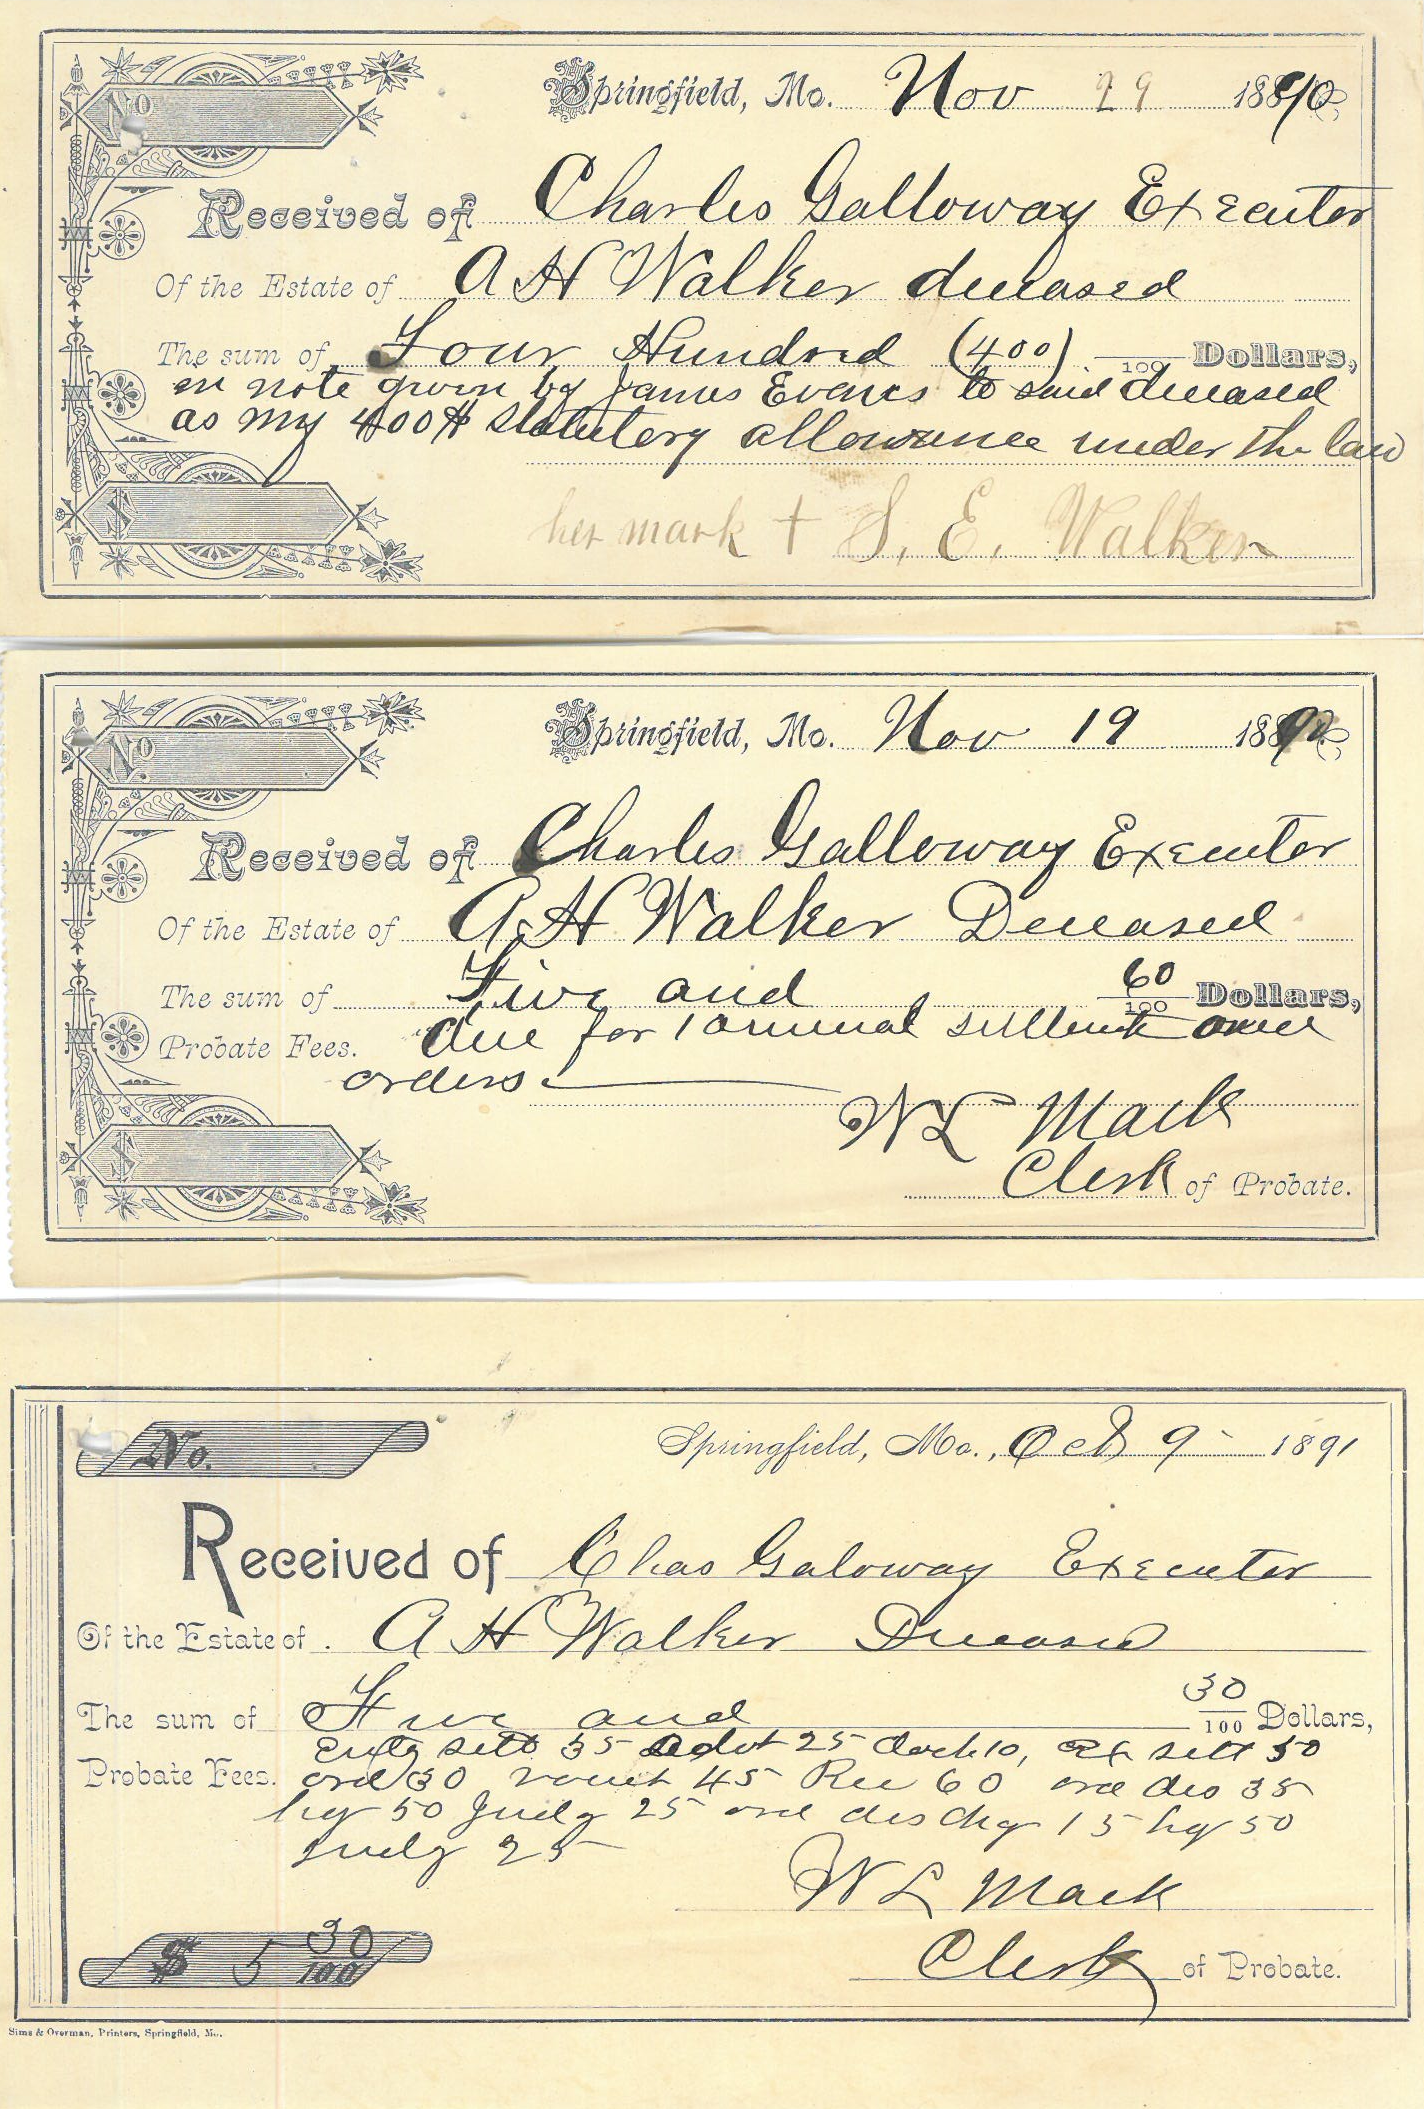 No
Springfield, Mo. Nov 29 1890
Received of Charles Galloway Executor
Of the Estate of A H Walker deceased
The sum of Four Hundred (400) /100 Dollars,
in note given by James Evans to said deceased
as my 400$ statutory allowance under the law
$
her mark + S. E. Walker
No
Springfield, Mo. Nov 19 1890
Received of Charles Galloway Executor
Of the Estate of A H Walker Deceased
The sum of Five and 60/100 Dollars,
Probate Fees. due for 1 annual settlemt and
orders
W L Mack
$
Clerk of Probate.
No.
Springfield, Mo., Oct 9 1891
Received of Chas Galoway Executor
Of the Estate of A H Walker Deceased
The sum of Five and 30/100 Dollars,
sett 35 25 10, sett 50
Probate Fees. ord 30 vouch 45 Rec 60 ord dis 35
hg 50 Judg 25 ord dischg 15 hg 50
Judg 25
W L Mack
$ 5 30/100
Clerk of Probate.
Sims & Overman, Printers, Springfield, Mo.